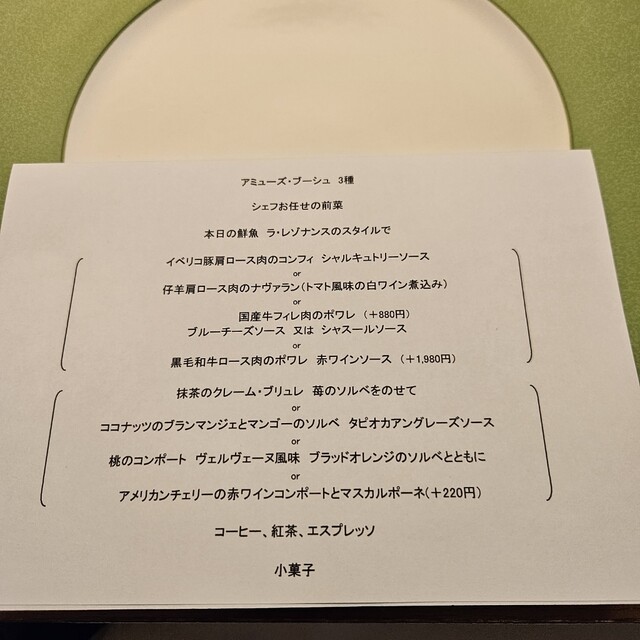 アミューズ・ブーシュ 3種
シェフお任せの前菜
本日の鮮魚 ラ・レゾナンスのスタイルで
イベリコ豚肩ロース肉のコンフィ シャルキュトリーソース
or
仔羊肩ロース肉のナヴァラン(トマト風味の白ワイン煮込み)
or
国産牛フィレ肉のポワレ (+880円)
ブルーチーズソース 又は シャスールソース
or
黒毛和牛ロース肉のポワレ 赤ワインソース (+1,980円)
抹茶のクレーム・ブリュレ 苺のソルベをのせて
or
ココナッツのブランマンジェとマンゴーのソルベ タピオカアングレーズソース
or
桃のコンポート ヴェルヴェーヌ風味 ブラッドオレンジのソルベとともに
or
アメリカンチェリーの赤ワインコンポートとマスカルポーネ(+220円)
コーヒー、紅茶、エスプレッソ
小菓子